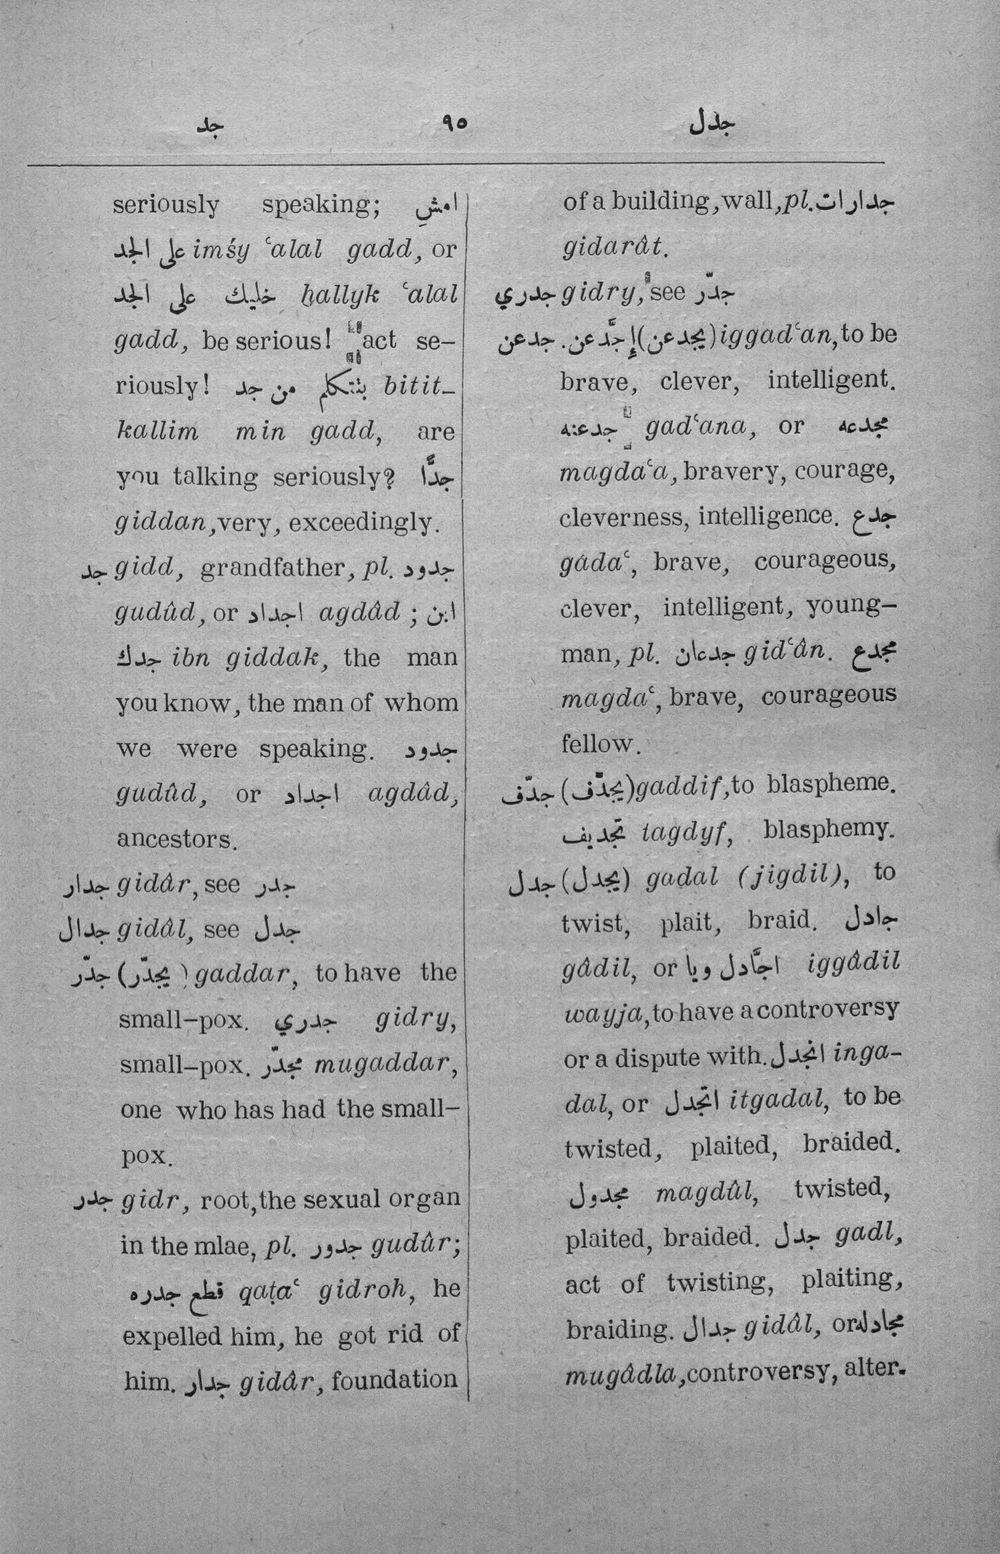 جد ٩٥ جدل
seriously speaking; امشِ
على الجد imśy ʿalal gadd, or
خليك على الجد ḫallyk ʿalal
gadd, be serious! act se–
riously! بتتكلم من جد bitit–
kallim min gadd, are
you talking seriously? جدًّا
giddan, very, exceedingly.
جد gidd, grandfather, pl. جدود
gudûd, or اجداد agdâd; ابن
جدك ibn giddak, the man
you know, the man of whom
we were speaking. جدود
gudûd, or اجداد agdâd,
ancestors.
جدار gidâr, see جدر
جدال gidâl, see جدل
جدّر (يجدّر) gaddar, to have the
small–pox. جدري gidry,
small–pox. مجدّر mugaddar,
one who has had the small–
pox.
جدر gidr, root, the sexual organ
in the mlae, pl. جدور gudûr;
قطع جدره qaṭaʿ gidroh, he
expelled him, he got rid of
him. جدار gidâr, foundation
of a building, wall, pl. جدارات
gidarât.
جدري gidry, see جدّر
جدعن. إجَّدعن (يجدعن) iggadʿan, to be
brave, clever, intelligent.
جدعنه gadʿana, or مجدعه
magdaʿa, bravery, courage,
cleverness, intelligence. جدع
gadaʿ, brave, courageous,
clever, intelligent, young–
man, pl. جدعان gidʿân. مجدع
magdaʿ, brave, courageous
fellow.
جدّف (يجدّف) gaddif, to blaspheme.
تجديف tagdyf, blasphemy.
جدل (يجدل) gadal (jigdil), to
twist, plait, braid. جادل
gâdil, or اجَّادل ويا iggâdil
wayja, to have a controversy
or a dispute with. انجدل inga–
dal, or اتجدل itgadal, to be
twisted, plaited, braided.
مجدول magdûl, twisted,
plaited, braided. جدل gadl,
act of twisting, plaiting,
braiding. جدال gidâl, or مجادله
mugâdla, controversy, alter.